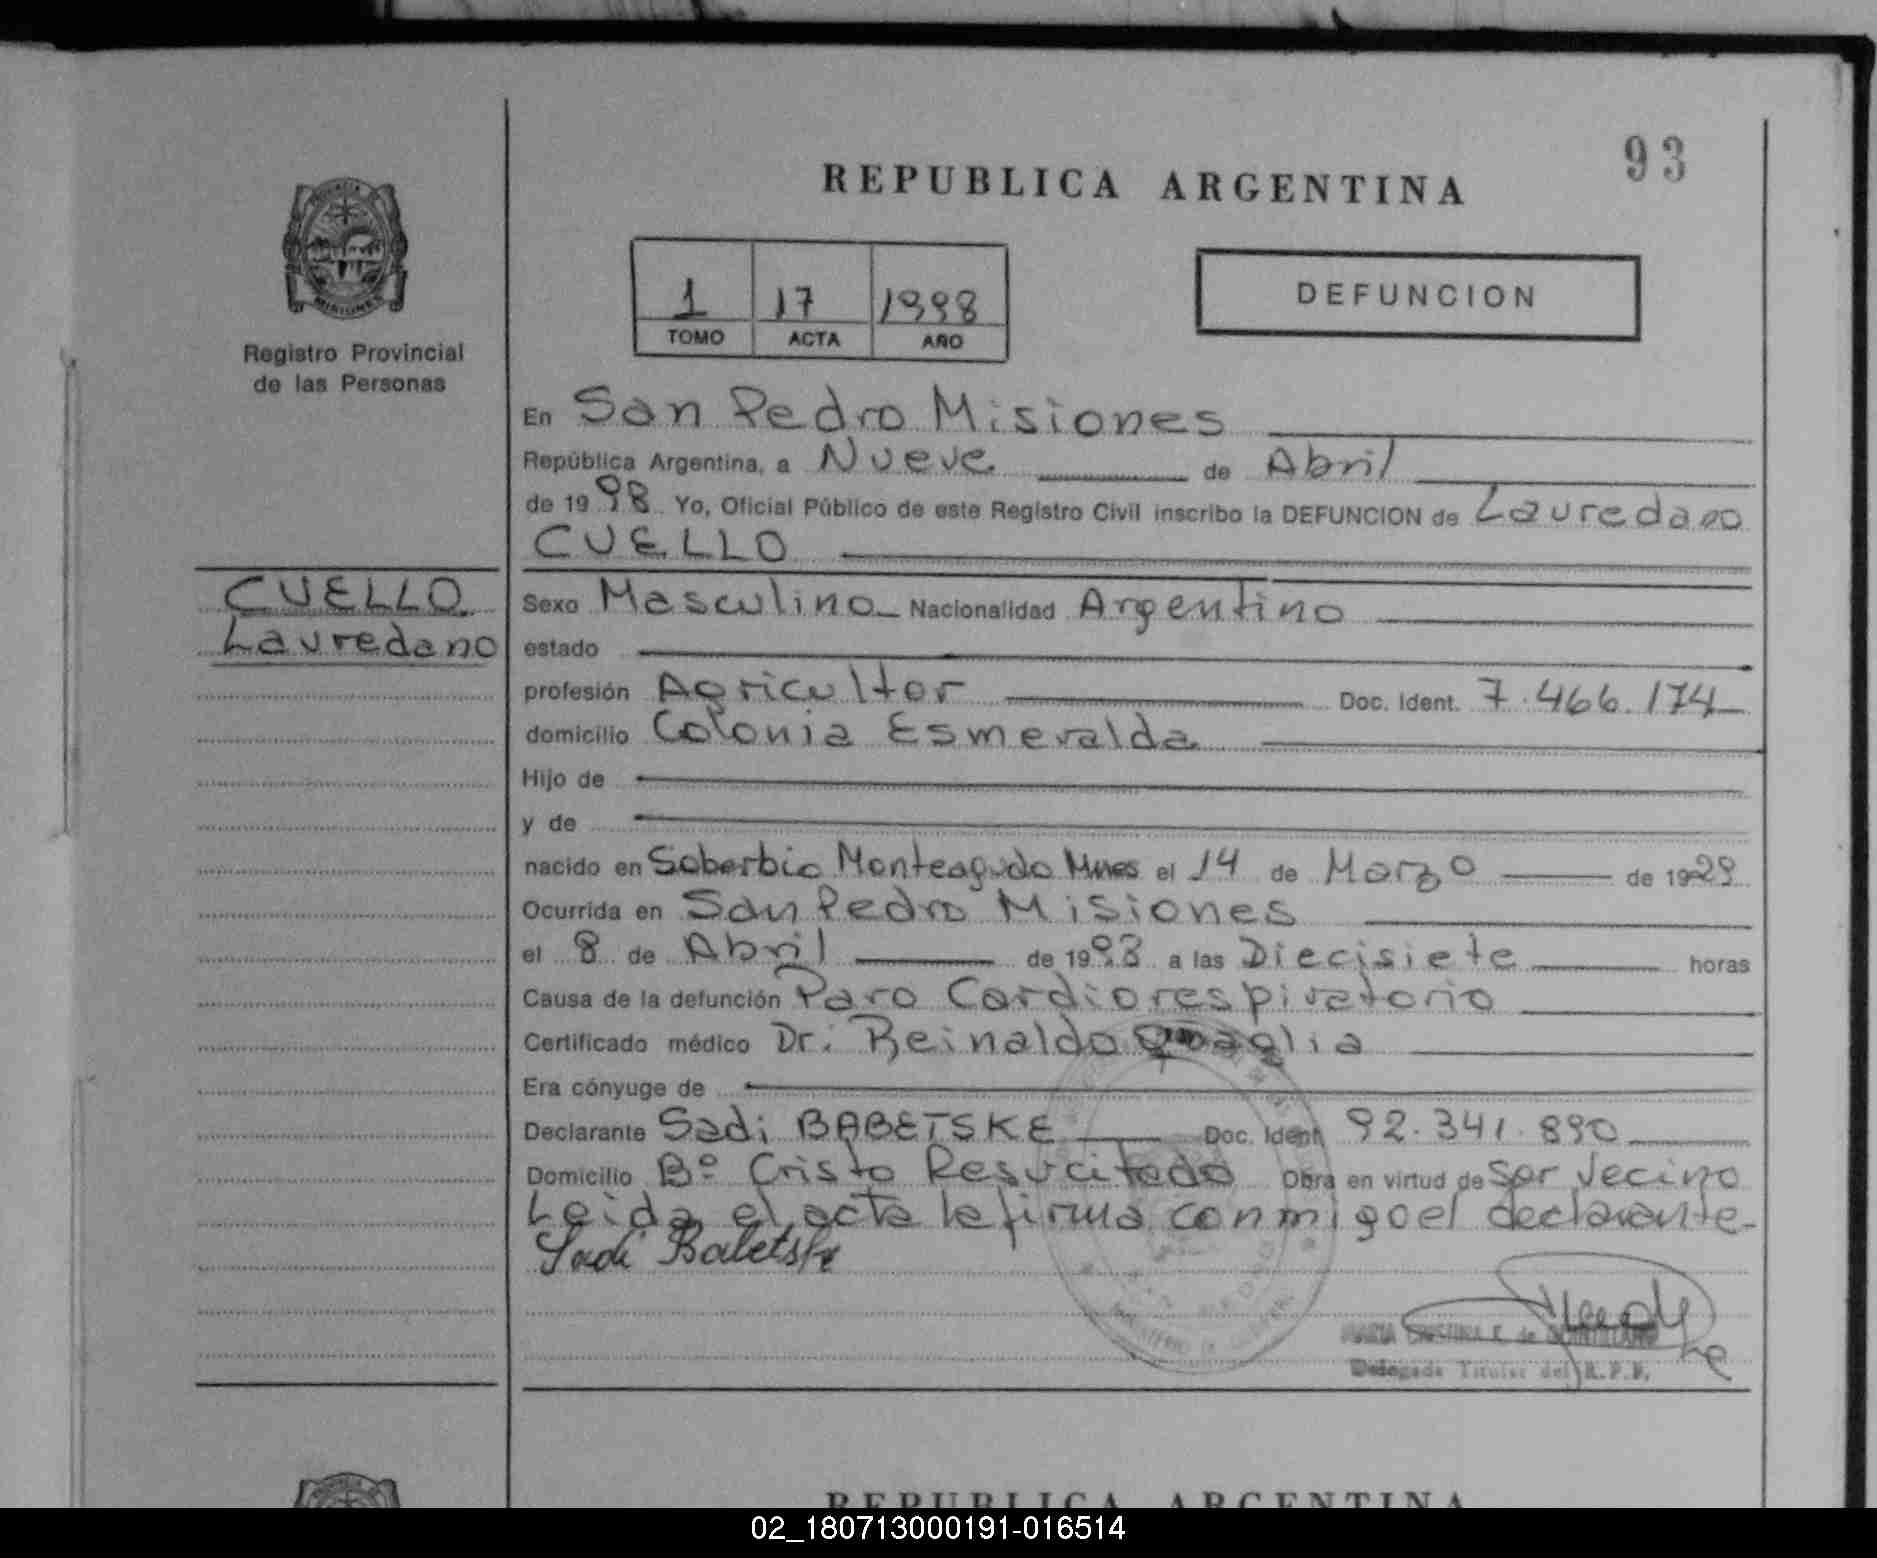 93
REPUBLICA ARGENTINA
1 17 1998
TOMO ACTA AÑO
DEFUNCION
Registro Provincial
de las Personas
En San Pedro Misiones
República Argentina, a Nueve de Abril
de 1998 Yo, Oficial Público de este Registro Civil inscribo la DEFUNCION de Lauredano
CUELLO
CUELLO
Lauredano
Sexo Masculino Nacionalidad Argentino
estado
profesión Agricultor Doc. Ident. 7.466.174
domicilio Colonia Esmeralda
Hijo de
y de
nacido en Soberbio Monteagudo Mnes el 14 de Marzo de 1929
Ocurrida en San Pedro Misiones
el 8 de Abril de 1998 a las Diecisiete horas
Causa de la defunción Paro Cardiorespiratorio
Certificado médico Dr: Reinaldo Quaglia
Era cónyuge de
Declarante Sadi BABETSKE Doc. Ident. 92.341.890
Domicilio Bº Cristo Resucitado Obra en virtud de Ser Vecino
Leida el acta la firma conmigo el declarante-
Sadi Babetske
MARIA CRISTINA E. de
Delegada Titular del R.P.P.
REPUBLICA ARGENTINA
02_180713000191-016514